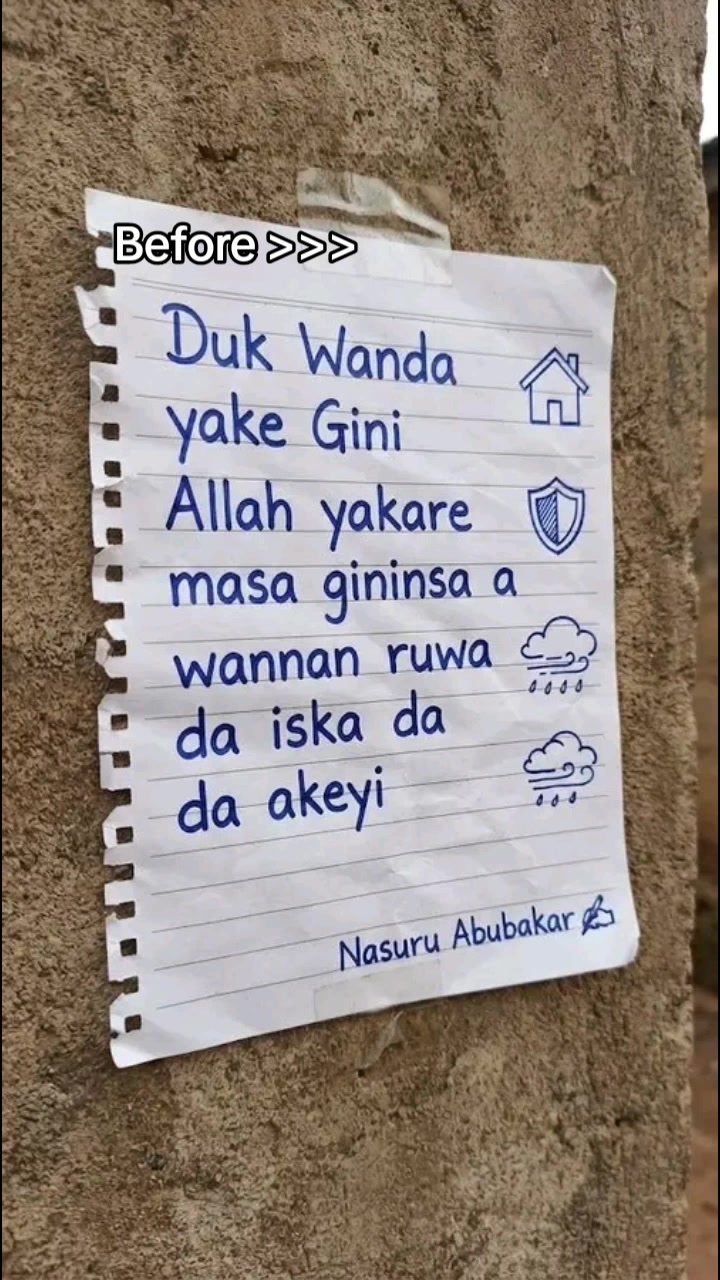 Before >>>
Duk Wanda
yake Gini
Allah yakare
masa gininsa a
wannan ruwa
da iska da
da akeyi
Nasuru Abubakar